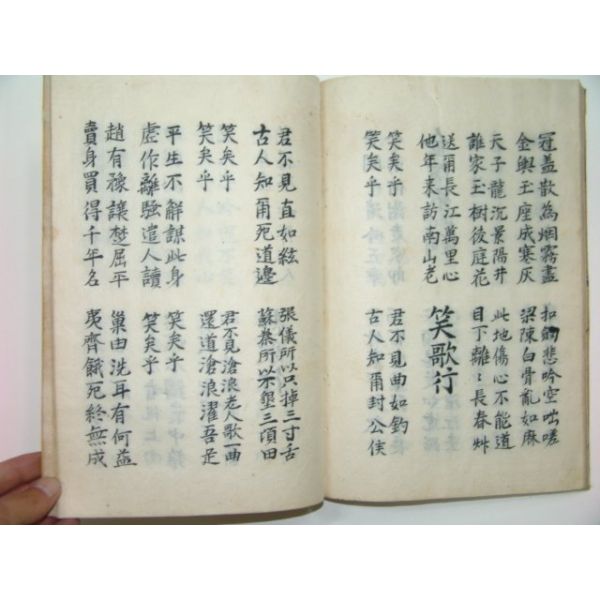 冠盖散為烟霧盡
金輿玉座成寒灰
扣釼悲吟空咄嗟
梁陳白骨亂如麻
天子龍沉景陽井
誰家玉樹後庭花
此地傷心不能道
目下離〻長春艸
送爾長江萬里心
他年來訪南山老
笑歌行
笑矣乎
笑矣乎
君不見曲如鈎
古人知爾封公侯
君不見直如絃
古人知爾死道邊
張儀所以只掉三寸舌
蘇秦所以不墾二頃田
笑矣乎
笑矣乎
君不見滄浪老人歌一曲
還道滄浪濯吾足
平生不解謀此身
虛作離騷遣人讀
笑矣乎
笑矣乎
趙有豫讓楚屈平
賣身買得千年名
巢由洗耳有何益
夷齊餓死終無成